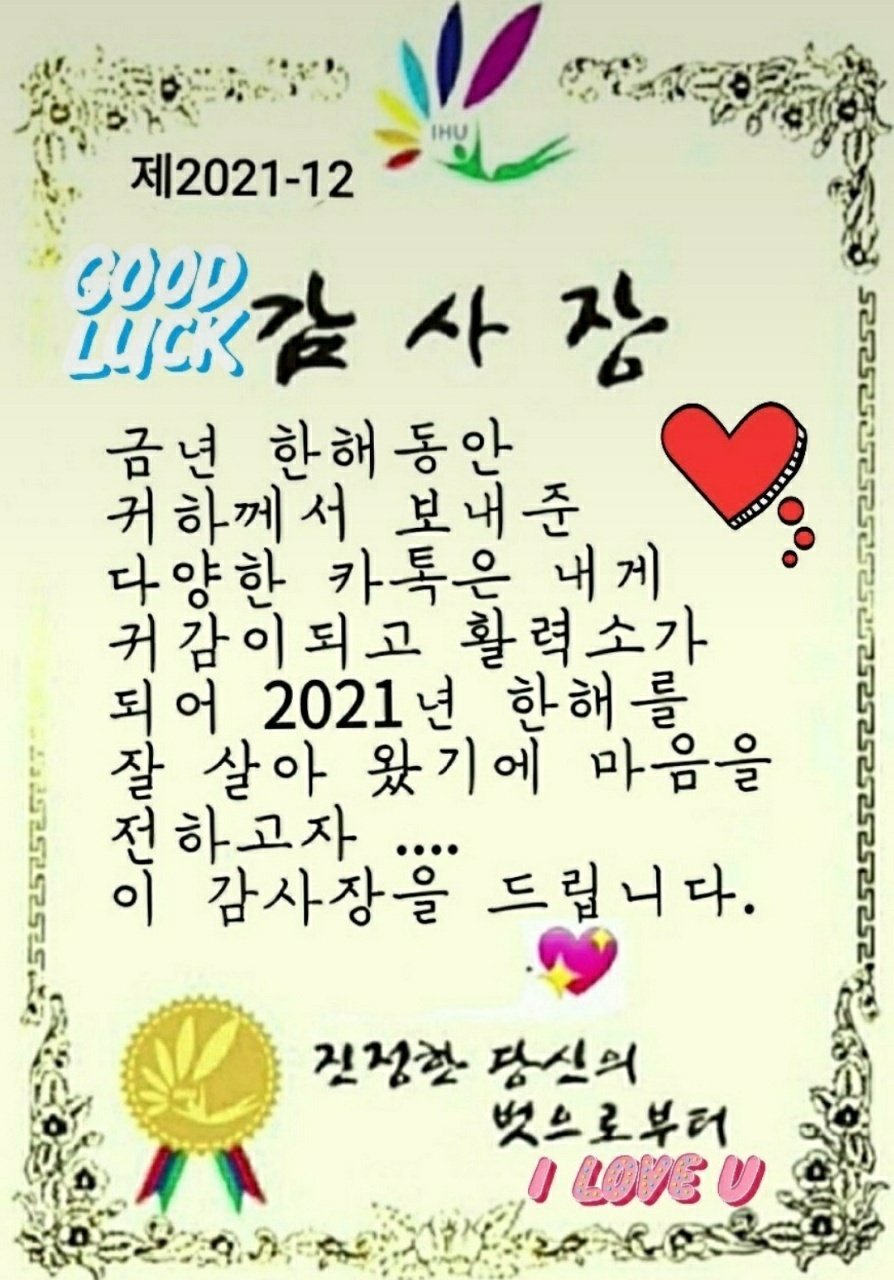 IHU
제2021-12
GOOD
LUCK
감 사 장
금년 한해동안
귀하께서 보내준
다양한 카톡은 내게
귀감이되고 활력소가
되어 2021년 한해를
잘 살아 왔기에 마음을
전하고자 ....
이 감사장을 드립니다.
진정한 당신의
벗으로부터
I LOVE U